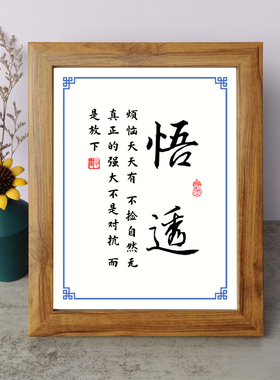 悟透
烦恼天天有 不捡自然无
真正的强大不是对抗 而
是放下